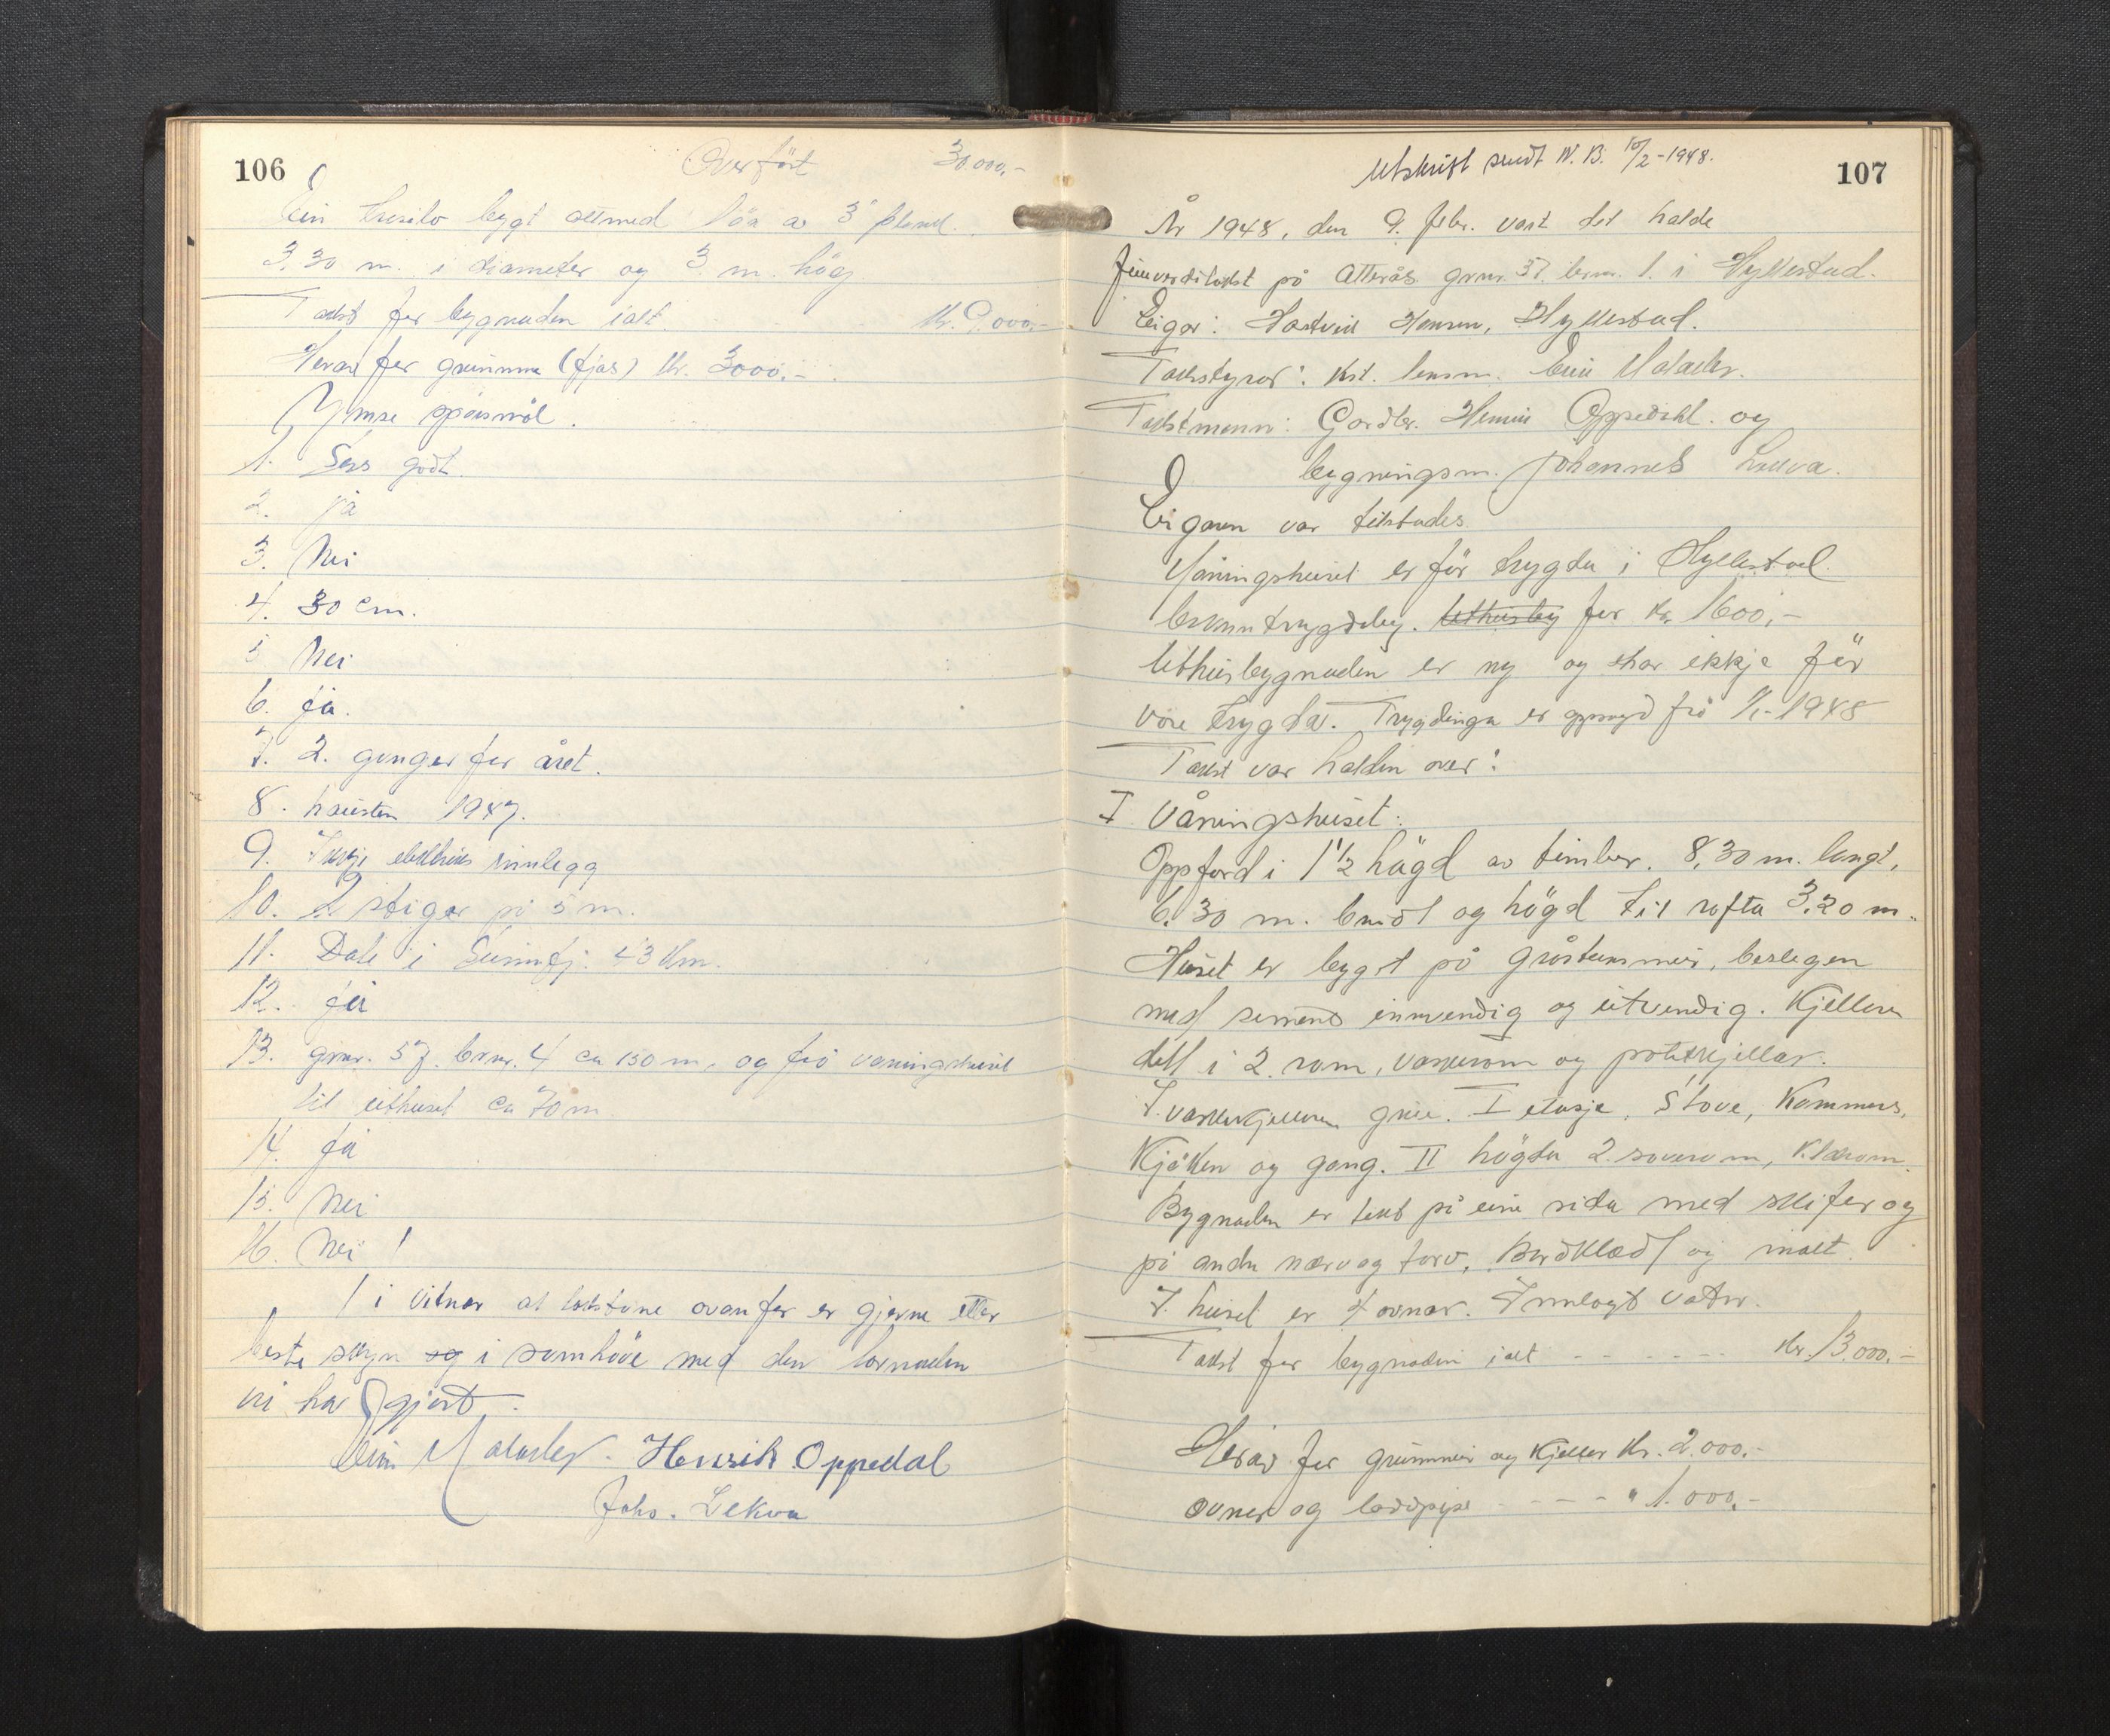 106
Overført 30.000,-
Ein tresilo bygt attmed löa av 3" plank.
3.30 m. i diameter og 3 m. høg
Takst for bygnaden ialt. Kr. 9.000,-
Herav for grunnmur (fjøs) Kr. 3000.-
Ymse spørsmål.
1. Sers godt.
2. ja
3. Nei
4. 30 cm.
5 Nei
6. ja.
7. 2. gonger for året.
8. hausten 1947.
9. Ikkje elektrisk innlegg
10. 2 stigar på 5 m.
11. Dale i Sunnfj. 43 km.
12. ja
13. gnr. 37. brnr. 4 ca 150 m. og frå våningshuset
til uthuset ca 70 m
14. Ja
15. Nei
16. Nei!
Vi vitnar at takstane ovanfor er gjorne etter
beste skyn og i samhöve med den lovnaden
vi har gjort.
Henrik Oppedal
Johs. Lekva
Utskrift sendt N. B. 10/2-1948.
107
År 1948, den 9. febr. vart det halde
på Atterås gnr. 37. brnr. 1. i Hyllestad.
Eigar: Hartvik Hansen, Hyllestad.
Takststyrar: kst. lensm.
Takstmenn: Gardbr. Henrik Oppedal og
bygningsm. Johannes Lekva.
Eigaren var tilstades
Våningshuset er för trygda i Hyllestad
branntrygdelag. uthusbyg for kr. 1600,-
Uthusbygnaden er ny og har ikkje för
vore trygda. Trygdinga er uppsagd frå 1/1-1948
Takst var halden over:
I Våningshuset:
Oppförd i 1 1/2 högd av timber. 8,30 m. langt,
6.30 m. breidt og högd til rafta 3.20 m.
Huset er bygt på gråsteinsmur, beslegen
med sement innvendig og utvendig. Kjellaren
delt i 2. rom, vaskerom og potetkjellar.
I vaskekjellaren grue. I etasje. Stove, Kammers,
Kjöken og gang. II högda 2. soverom, klærom.
Bygnaden er tekt på eine sida med skifer og
på andre næver og torv, Bordklædt og malt.
I huset er 4 ovnar. Innlagt vatn.
Takst for bygnaden ialt - - - - - - - Kr. 13.000.-
Herav for grunnmur og kjeller Kr. 2.000.-
ovner og - - - - " 1.000,-